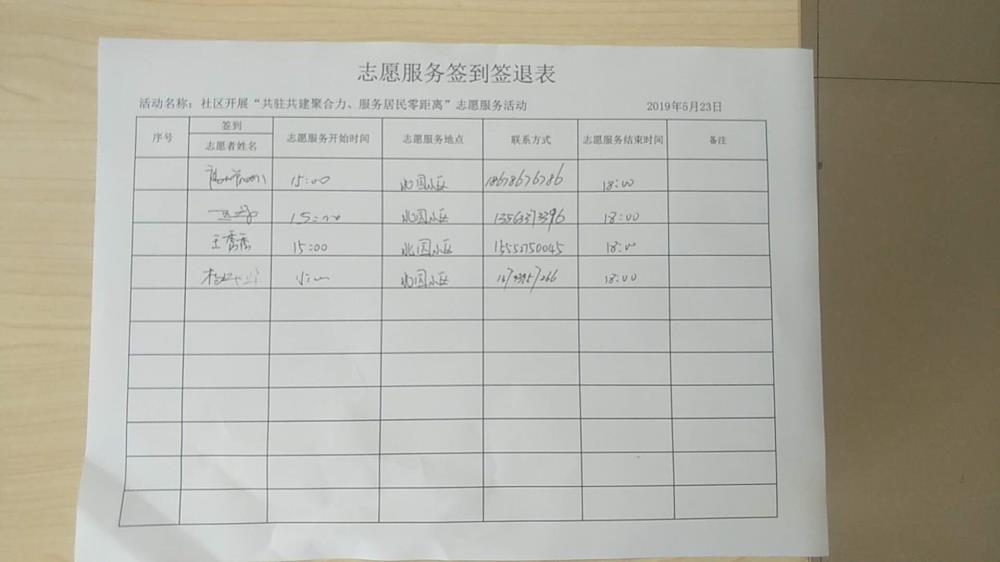 志愿服务签到签退表
活动名称：社区开展“共驻共建聚合力、服务居民零距离”志愿服务活动 2019年5月23日
序号 签到 志愿者姓名 志愿服务开始时间 志愿服务地点 联系方式 志愿服务结束时间 备注
15:00 北园小区 18678676786 18:00
15:00 北园小区 18:00
王秀秀 15:00 北园小区 15552750045 18:00
北园小区 18:00